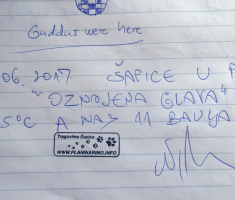 Guddus were here
06. 2017 ŠAPICE U P
"OZNOJENA GLAVA"
5°C A NAS 11 BAULJA
Tragovima Šapica
WWW.PLANINARIMO.INFO